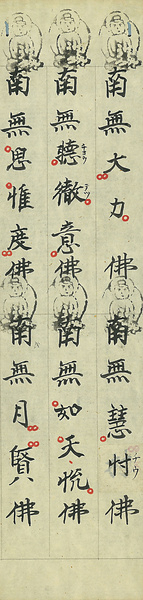 南無大力佛　南無慧忖佛
南無聴徹意佛　南無如天悦佛
南無思惟度佛　南無月賢佛